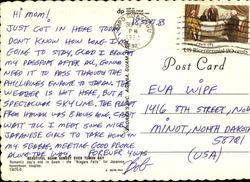 Hi mom!,
JUST GOT IN HERE TODAY
DON'T KNOW HOW LONG I'M
GOING TO STAY, GLAD I BROUGHT
MY PASSPORT AFTER ALL, GONNA
NEED IT TO PASS THROUGH THE
PHILLIPINES ENROUTE TO JAPAN. THE
WEATHER IS HOT HERE, BUT A
SPECTACULAR SKYLINE. THE FLIGHT
FROM HAWAII WAS 8 HOURS LONG, CAN'T
WAIT TILL I MEET SOME NICE
JAPANESE GIRLS TO TAKE HOME IN
MY SUITCASE, MEETING GOOD PEOPLE
ALONG THE WAY. FOREVER YOURS
Bob
BEAUTIFUL GUAM SUNSET OVER TUMON BAY
PM
Post Card
EVA WIPF
1416 8TH STREET,
MINOT, NORTH DAKOTA
58701
(USA)